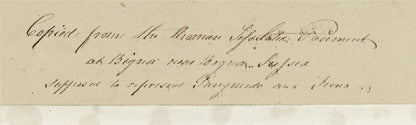 Copied from the Roman Tesselated Pavement
at Bignor near Bognor Sussex
supposed to represent Ganymede and Juno